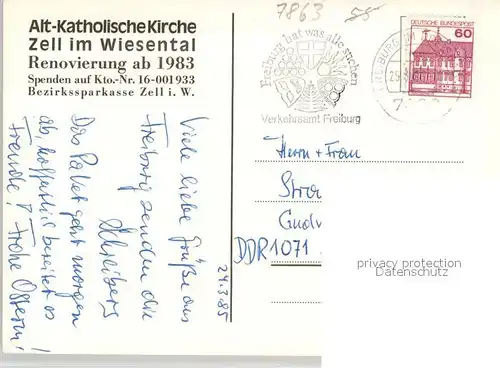 Alt-Katholische Kirche
Zell im Wiesental
Renovierung ab 1983
Spenden auf Kto.-Nr. 16-001933
Bezirkssparkasse Zell i. W.
7863
Freiburg hat was alle suchen
Verkehrsamt Freiburg
DEUTSCHE BUNDESPOST
60
Viele liebe Grüße aus
Freiburg senden die
Schreibers
Das Paket geht morgen
ab, hoffentlich bereitet es
Freude! Frohe Ostern!
24.3.85
Herrn + Frau
DDR 1071
privacy protection
Datenschutz